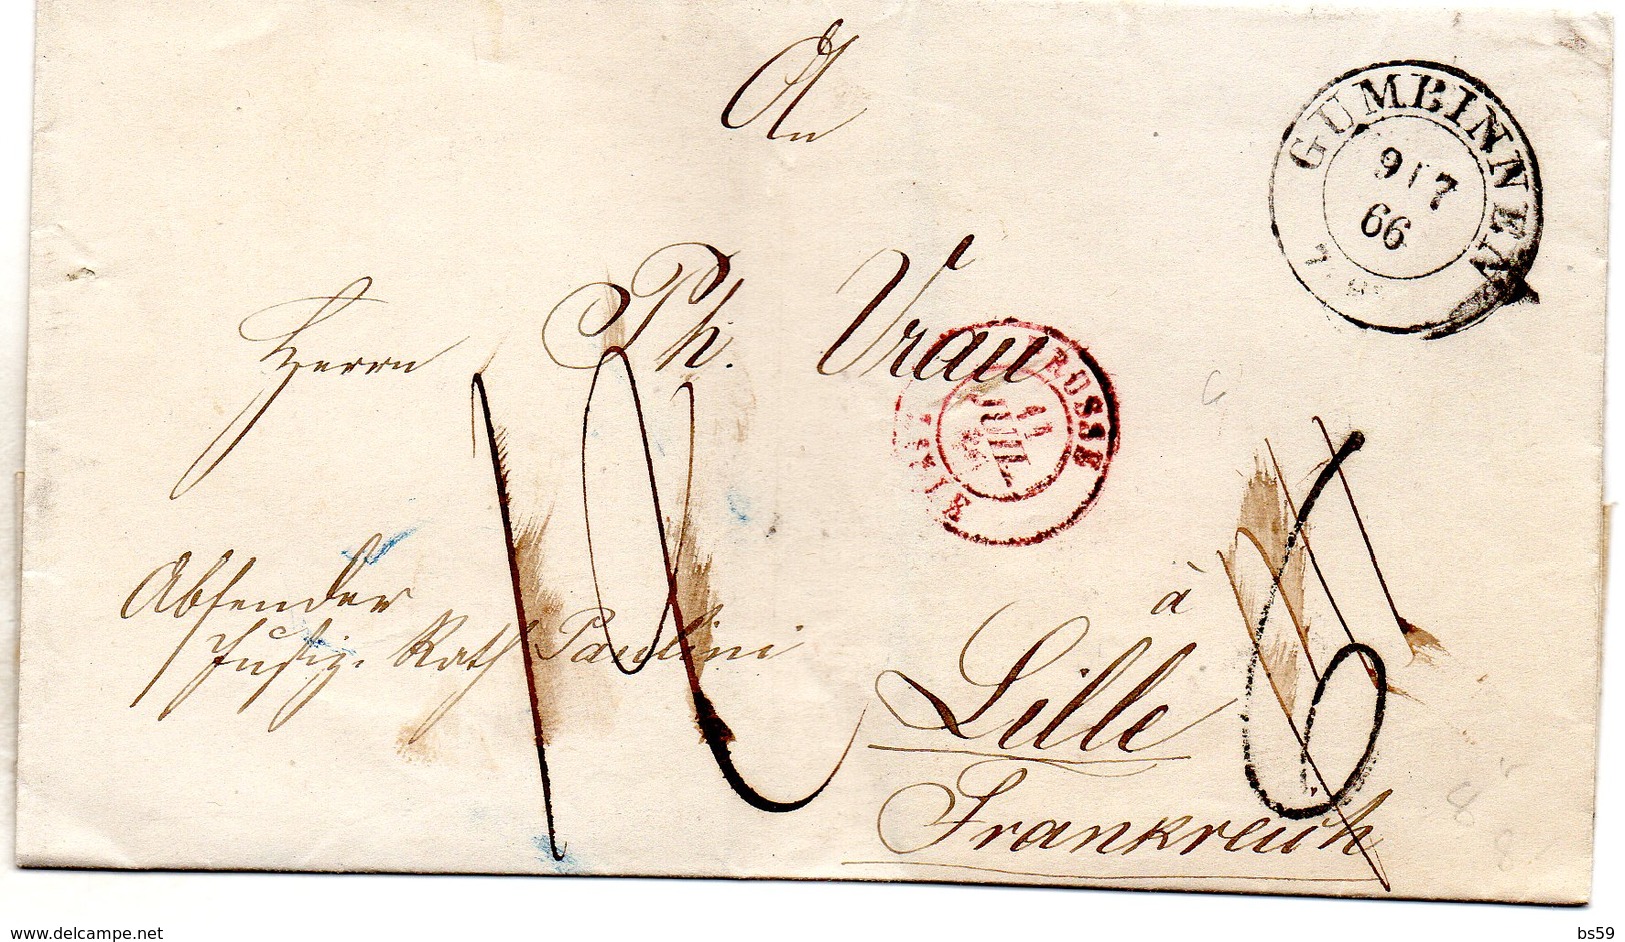 An
GUMBINNEN
9 7
66
Herrn Ph. Vrau
ROSSE
JUIL
Absender
Justiz. Rath Paulini
à
Lille
Frankreich
6
www.delcampe.net
bs59